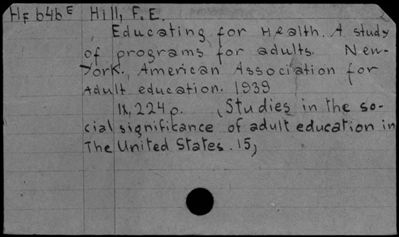 HF b4b E Hill, F. E.
Educating for Health. A study
of programs for adults. New-
York. American Association for
Adult education. 1939
IX, 224 p. (Studies in the so-
cial significance of adult education in
The United States. 15)